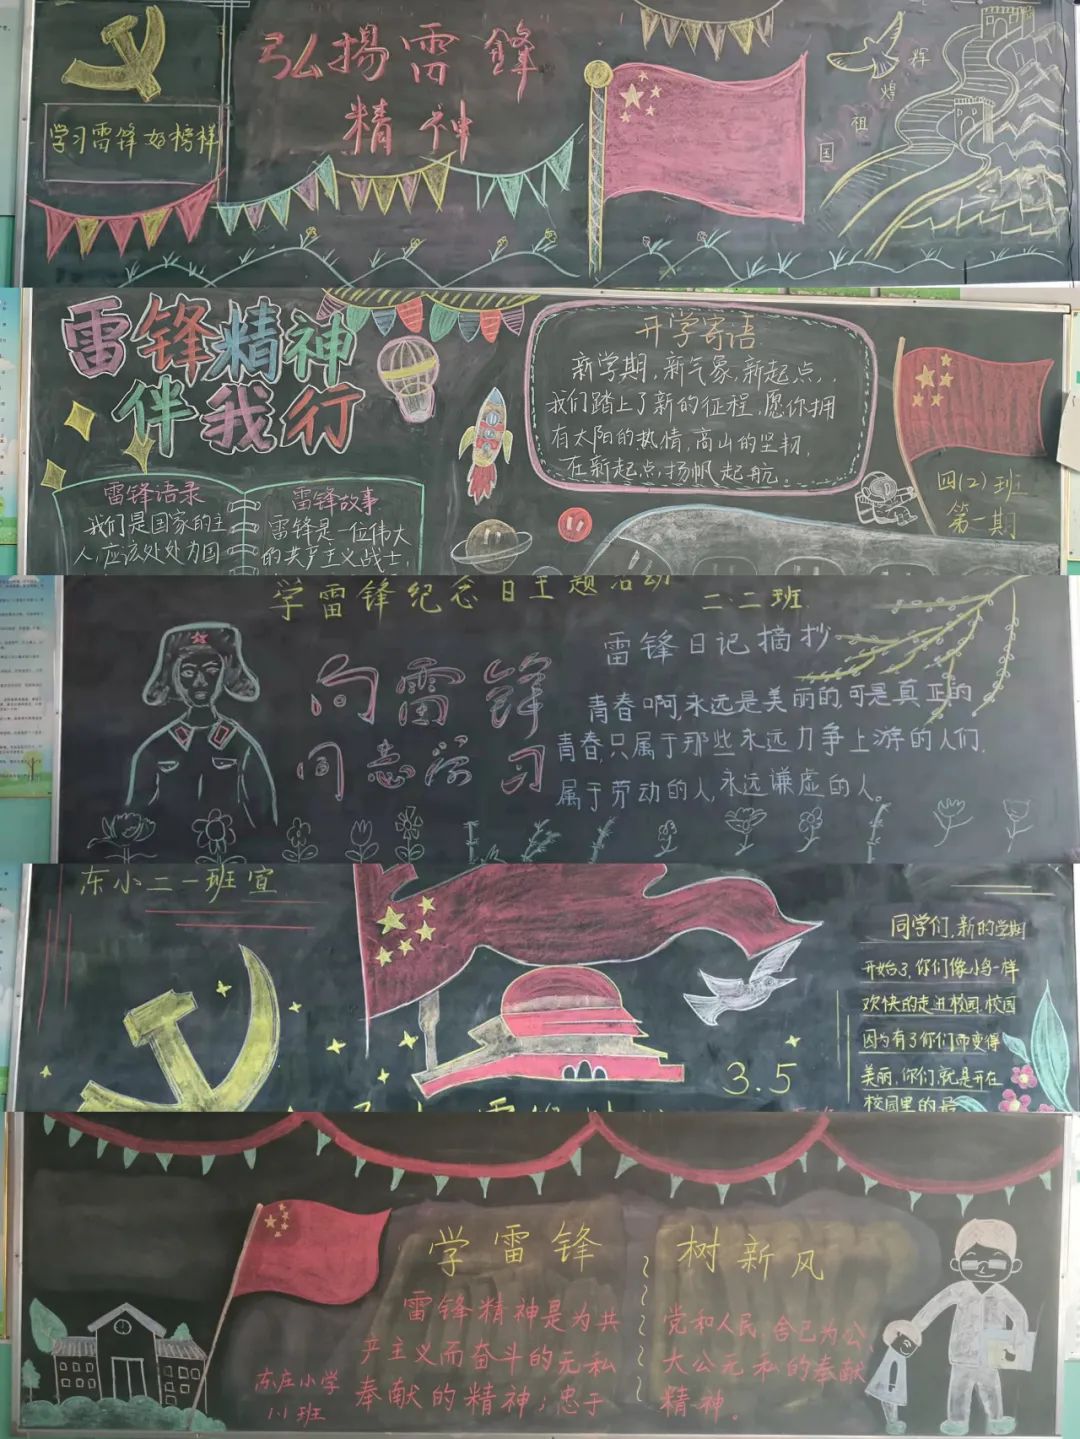 弘揚雷锋
精神
学习雷锋好榜样
辉
煌
祖
国
雷锋精神
伴我行
开学寄语
新学期,新气象,新起点,
我们踏上了新的征程,愿你拥
有太阳的热情,高山的坚韧,
在新起点,扬帆起航。
雷锋语录
我们是国家的主
人,应该处处为国
雷锋故事
雷锋是一位伟大
的共产主义战士,
四(2)班
第一期
学雷锋纪念日主题活动
二·二班
向雷锋
同志学习
雷锋日记摘抄
青春啊,永远是美丽的,可是真正的
青春,只属于那些永远力争上游的人们,
属于劳动的人,永远谦虚的人。
东小二一班宣
3.5
同学们,新的学期
开始了,你们像小鸟一样
欢快的走进校园,校园
因为有了你们而变得
美丽,你们,就是开在
校园里的最
学雷锋 树新风
雷锋精神是为共
产主义而奋斗的无私
奉献的精神;忠于
党和人民,舍己为公
大公无私的奉献
精神。
东庄小学
1.1班